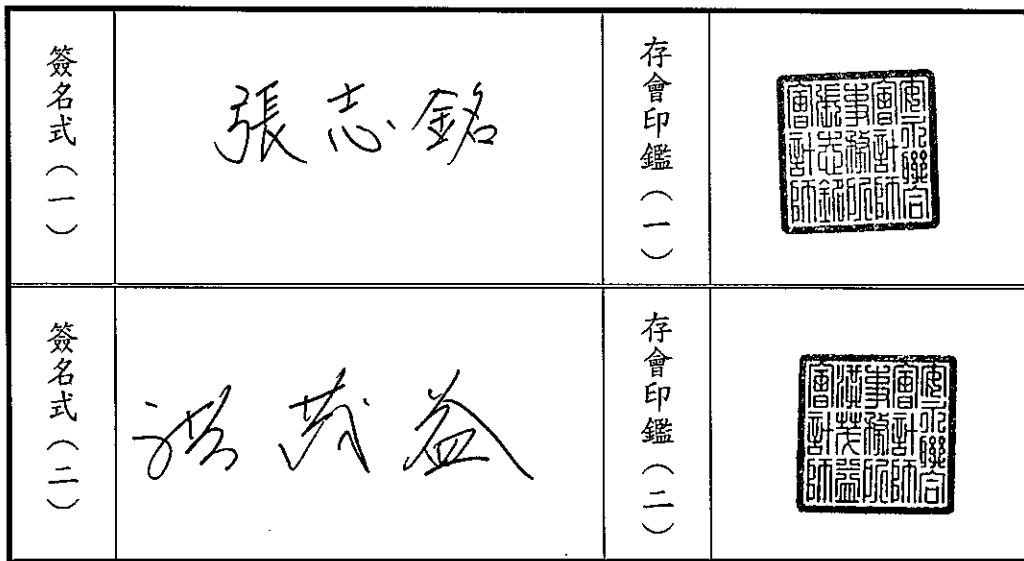 簽名式（一）
張志銘
存會印鑑（一）
安永聯合
會計師
事務所
張志銘
會計師
簽名式（二）
洪茂益
存會印鑑（二）
安永聯合
會計師
事務所
洪茂益
會計師